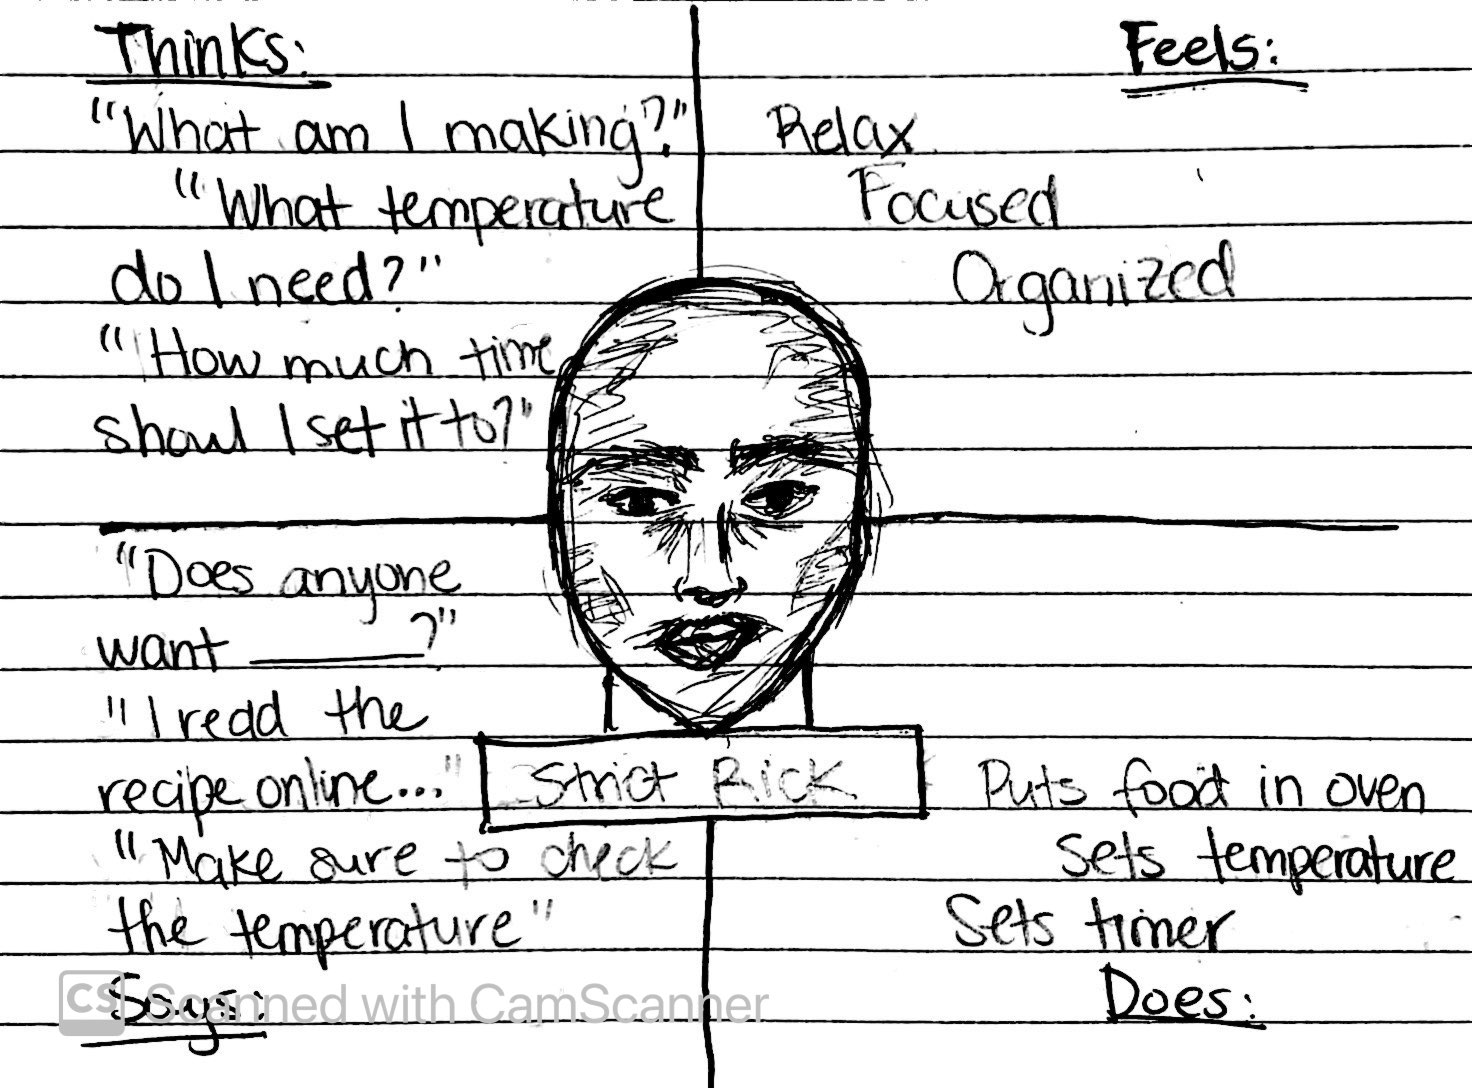 Thinks:
"What am I making?"
"What temperature
do I need?"
"How much time
shoul I set it to?"
Feels:
Relax
Focused
Organized
"Does anyone
want ______?"
"I read the
recipe online..."
"Make sure to check
the temperature"
Says:
Strict Rick
Puts food in oven
Sets temperature
Sets timer
Does:
CS Scanned with CamScanner